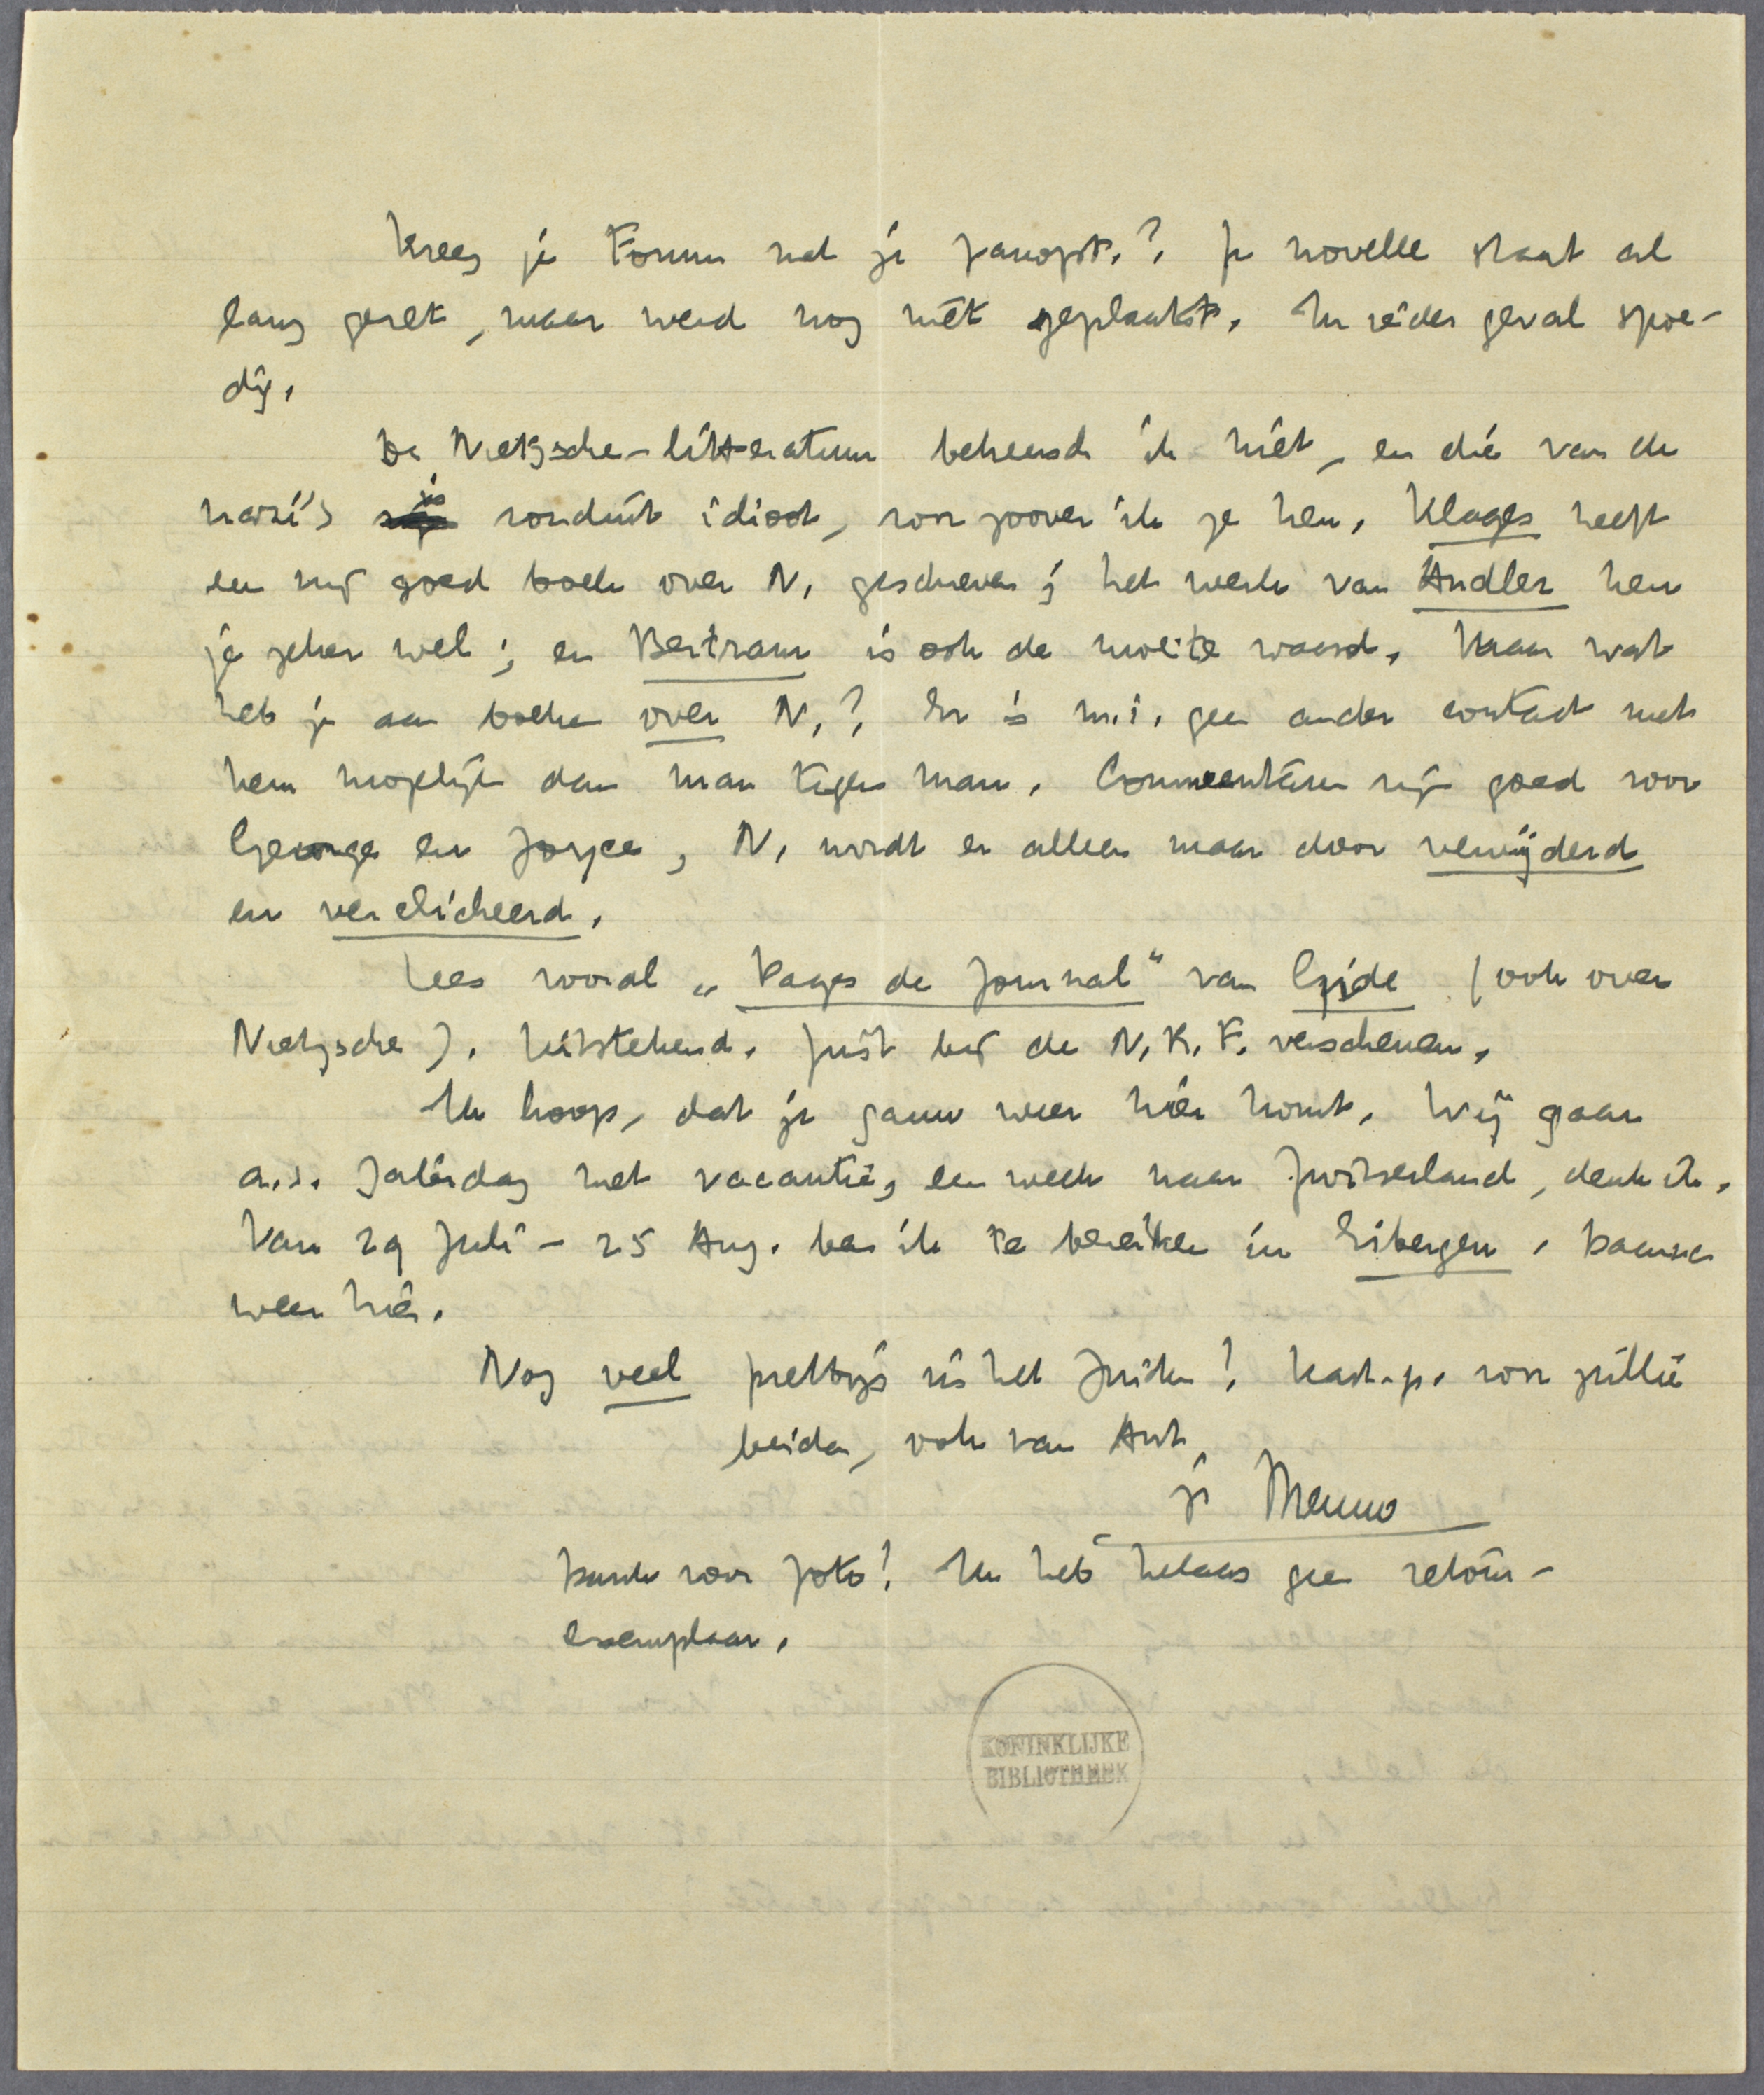 Kreeg je Forum met je panopt.? Je novelle staat al
lang gezet, maar werd nog niet geplaatst. In ieder geval spoe-
dig.
De Nietzsche-litteratuur beheersch ik niet, en die van de
nazi's is ronduit idioot, voor zoover ik ze ken. Klages heeft
een zeer goed boek over N. geschreven; het werk van Andler ken
je zeker wel; en Bertram is ook de moeite waard. Maar wat
heb je aan boeken over N.? Er is m.i. geen ander contact met
hem mogelijk dan man tegen man. Commentaren zijn goed voor
George en Joyce, N. wordt er alleen maar door verwijderd
en verclicheerd.
Lees vooral „Pages de Journal" van Gide (ook over
Nietzsche). Uitstekend. Juist bij de N.R.F. verschenen.
Ik hoop, dat je gauw weer hier komt. Wij gaan
a.s. Zaterdag met vacantie, een week naar Zwitserland, denk ik.
Van 29 Juli - 25 Aug. ben ik te bereiken in Eibergen. Daarna
weer hier.
Nog veel prettigs in het Zuiden! Hart. gr. voor jullie
beiden, ook van Ant
je Menno
Dank voor foto! Ik heb helaas geen retour-
exemplaar.
KONINKLIJKE
BIBLIOTHEEK